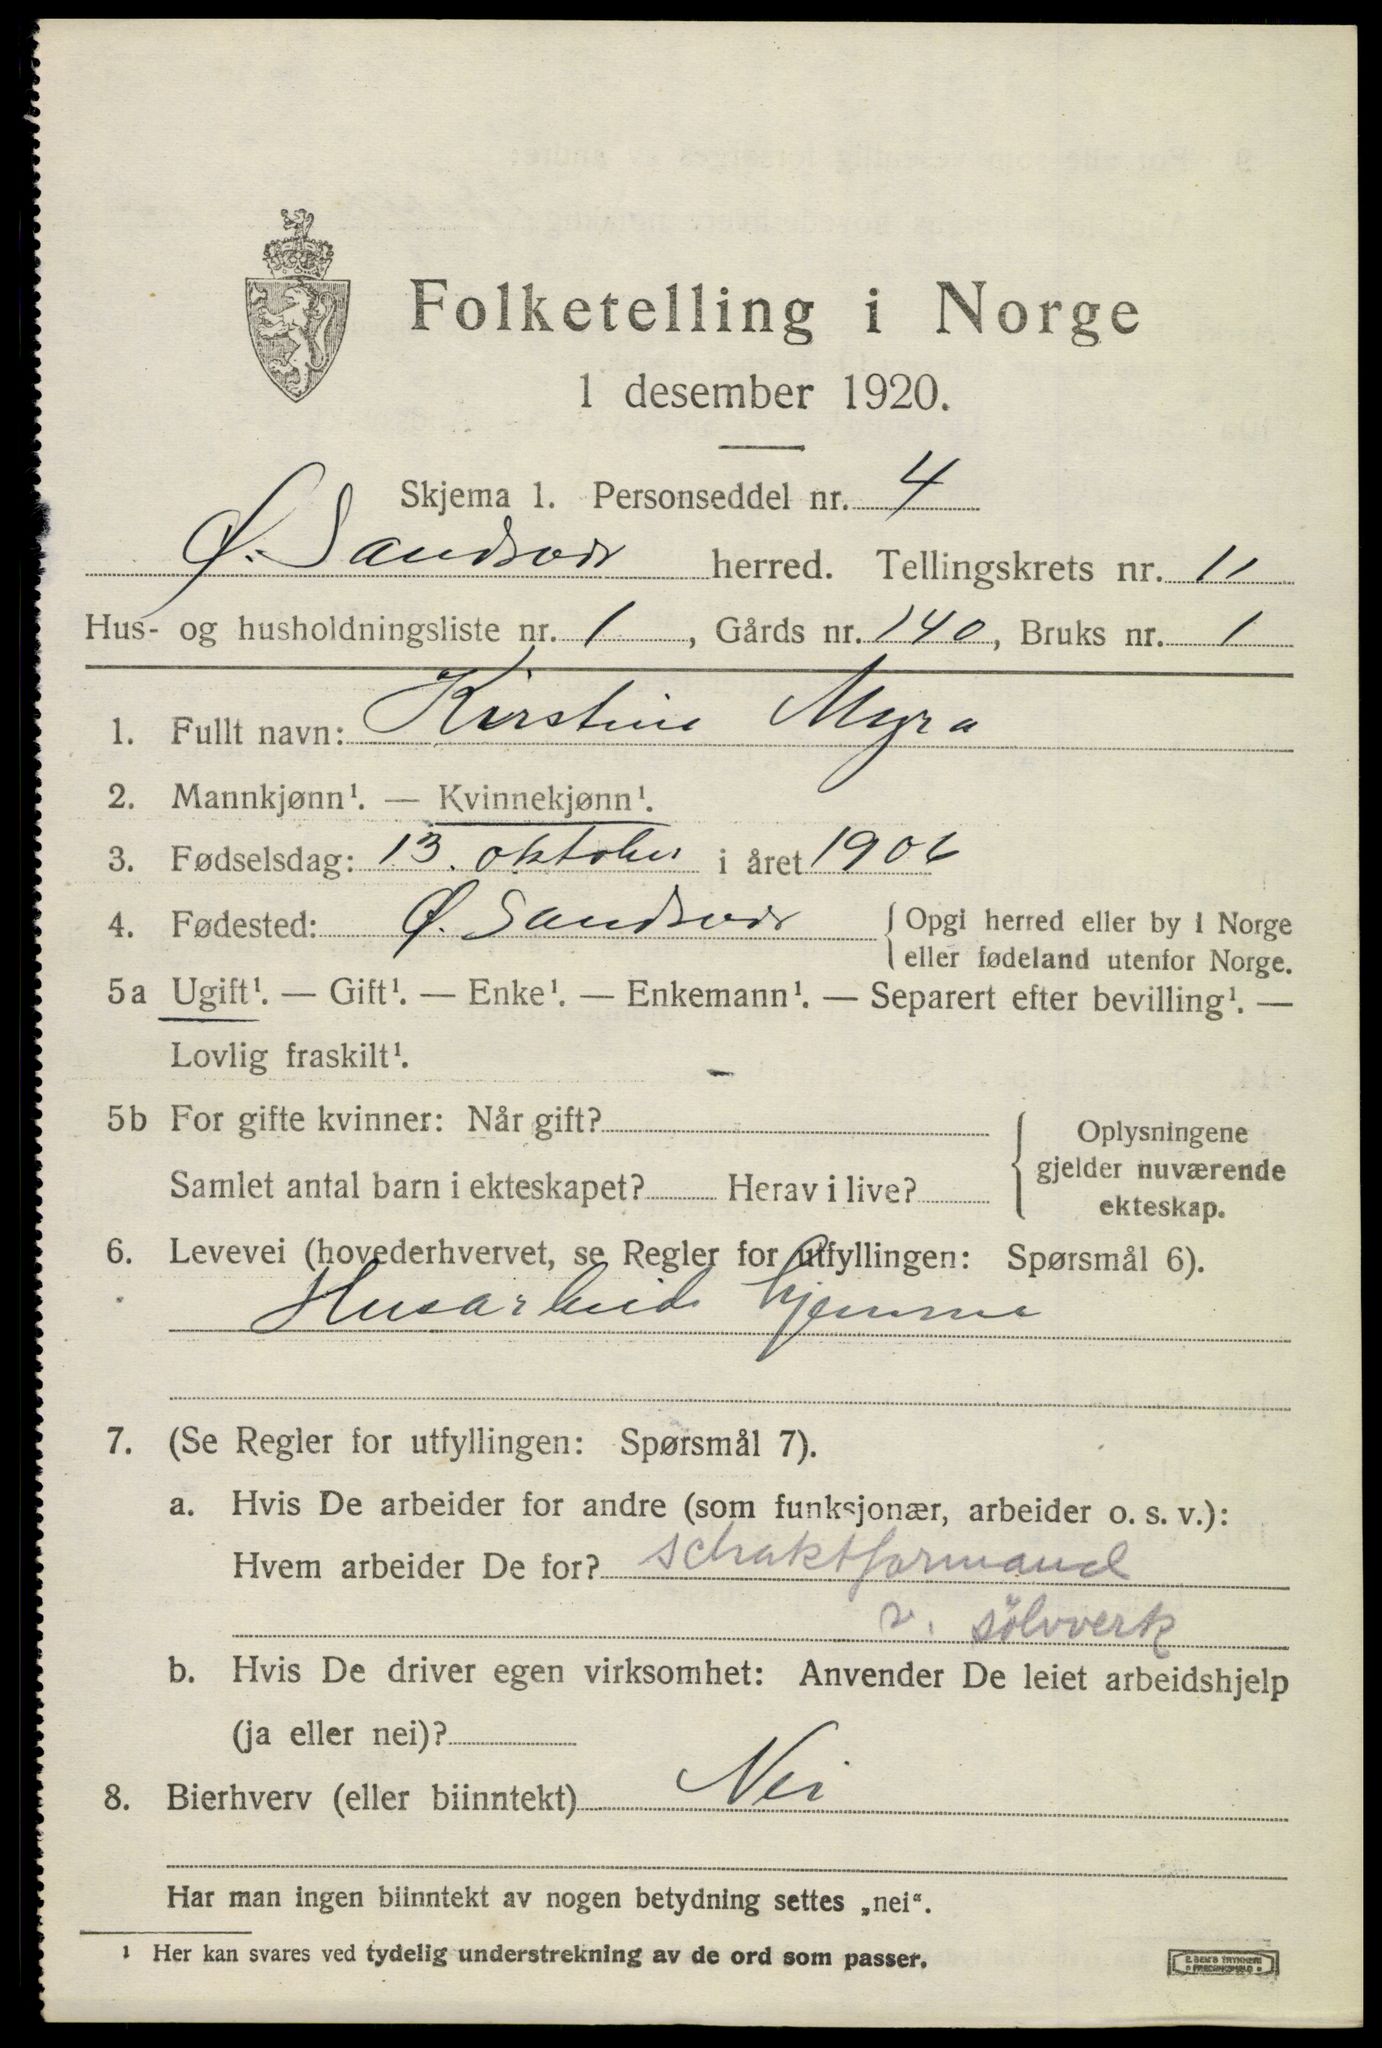 Folketelling i Norge
1 desember 1920.
Skjema 1. Personseddel nr. 4
Ø. Sandsvær herred. Tellingskrets nr. 11
Hus- og husholdningsliste nr. 1, Gårds nr. 140, Bruks nr. 1
1. Fullt navn: Kirstine Myra
2. Mannkjønn¹. — Kvinnekjønn¹.
3. Fødselsdag: 13. oktober i året 1906
4. Fødested: Ø. Sandsvær { Opgi herred eller by i Norge
eller fødeland utenfor Norge.
5a Ugift¹. — Gift¹. — Enke¹. — Enkemann¹. — Separert efter bevilling¹. —
Lovlig fraskilt¹.
5b For gifte kvinner: Når gift?
Samlet antal barn i ekteskapet? Herav i live?
Oplysningene
gjelder nuværende
ekteskap.
6. Levevei (hovederhvervet, se Regler for utfyllingen: Spørsmål 6).
Husarbeid hjemme
7. (Se Regler for utfyllingen: Spørsmål 7).
a. Hvis De arbeider for andre (som funksjonær, arbeider o. s. v.):
Hvem arbeider De for? schaktformand
v. sölvverk
b. Hvis De driver egen virksomhet: Anvender De leiet arbeidshjelp
(ja eller nei)?
8. Bierhverv (eller biinntekt) Nei
Har man ingen biinntekt av nogen betydning settes „nei“.
¹ Her kan svares ved tydelig understrekning av de ord som passer.